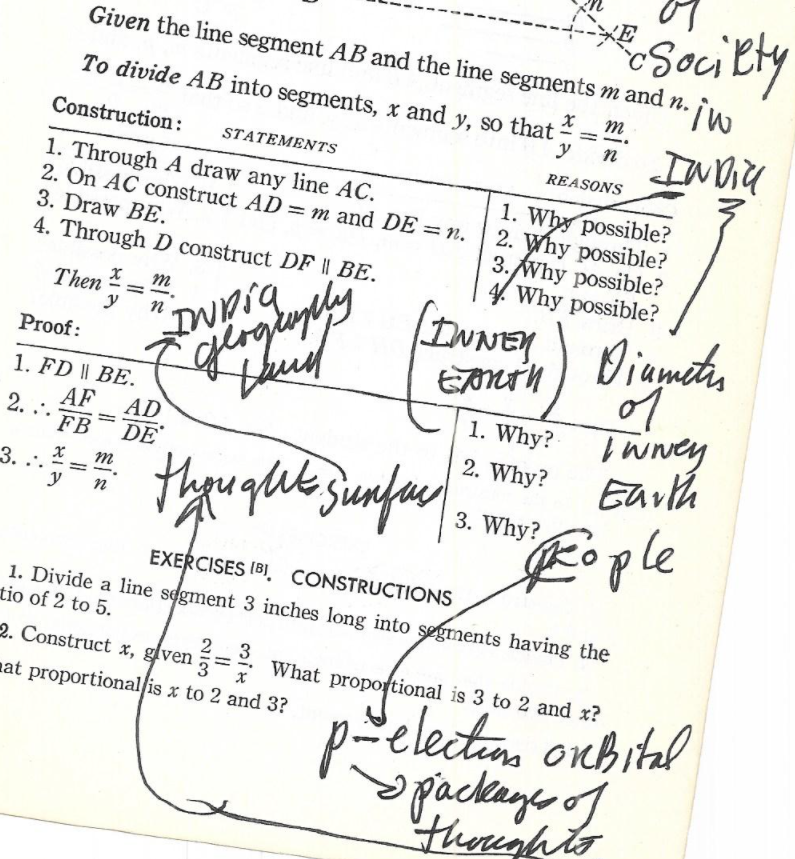 n
of
E
C
Society
Given the line segment AB and the line segments m and n.
in
To divide AB into segments, x and y, so that x/y = m/n.
INDia
Construction:
STATEMENTS
REASONS
1. Through A draw any line AC.
2. On AC construct AD = m and DE = n.
3. Draw BE.
4. Through D construct DF ∥ BE.
1. Why possible?
2. Why possible?
3. Why possible?
4. Why possible?
Then x/y = m/n.
INDia
geography
Land
(INNER
EARTH)
Diameter
of
INNER
Earth
Proof:
1. FD ∥ BE.
2. ∴ AF/FB = AD/DE.
3. ∴ x/y = m/n.
1. Why?
2. Why?
3. Why?
thoughts surface
people
EXERCISES [B]. CONSTRUCTIONS
1. Divide a line segment 3 inches long into segments having the
tio of 2 to 5.
2. Construct x, given 2/3 = 3/x. What proportional is 3 to 2 and x?
hat proportional is x to 2 and 3?
p-electrons orBital
packages of
thoughts